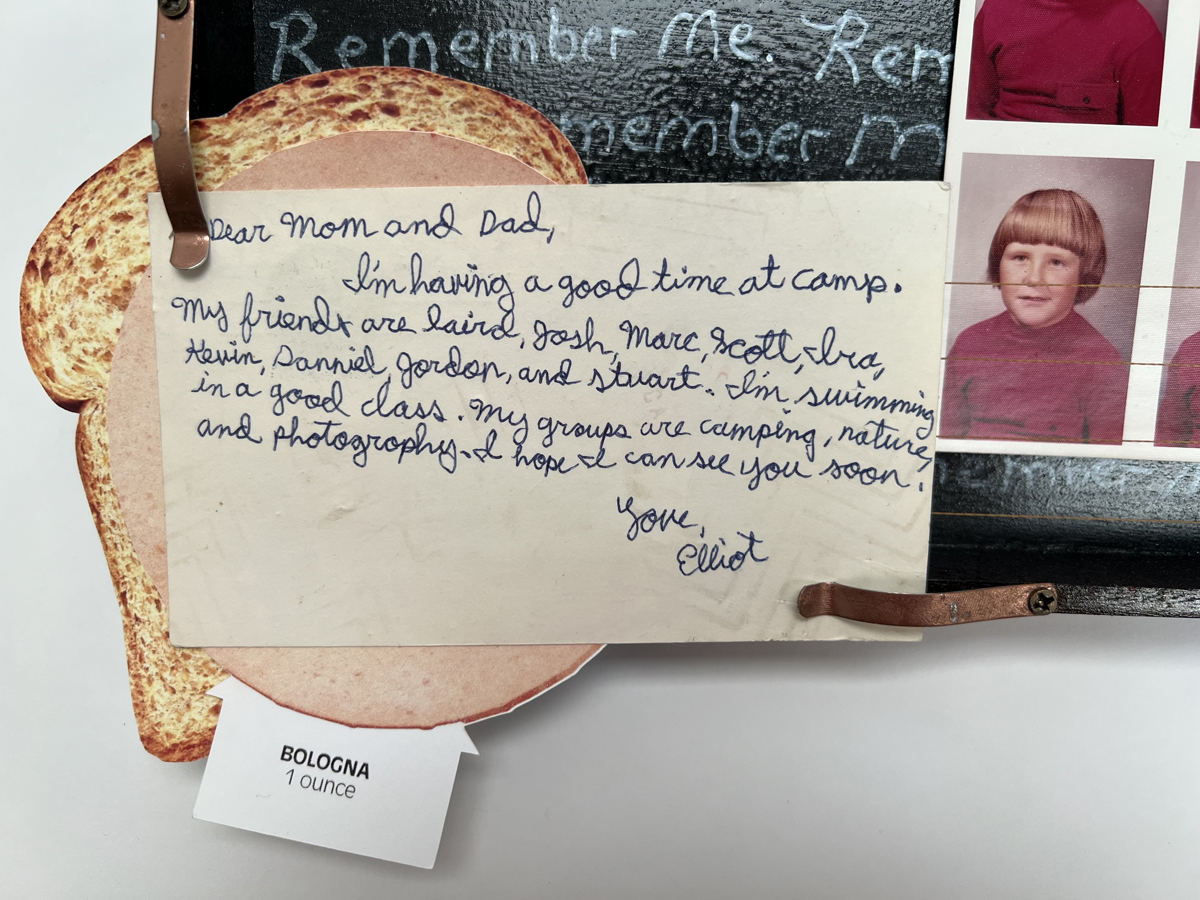 Remember Me. Rem
member M
Dear Mom and Dad,
I'm having a good time at camp.
My friends are laird, Josh, Marc, Scott, Ira,
Kevin, Danniel, Jordon, and stuart. I'm swimming
in a good class. My groups are camping, nature,
and photography. I hope I can see you soon.
Love,
Elliot
BOLOGNA
1 ounce